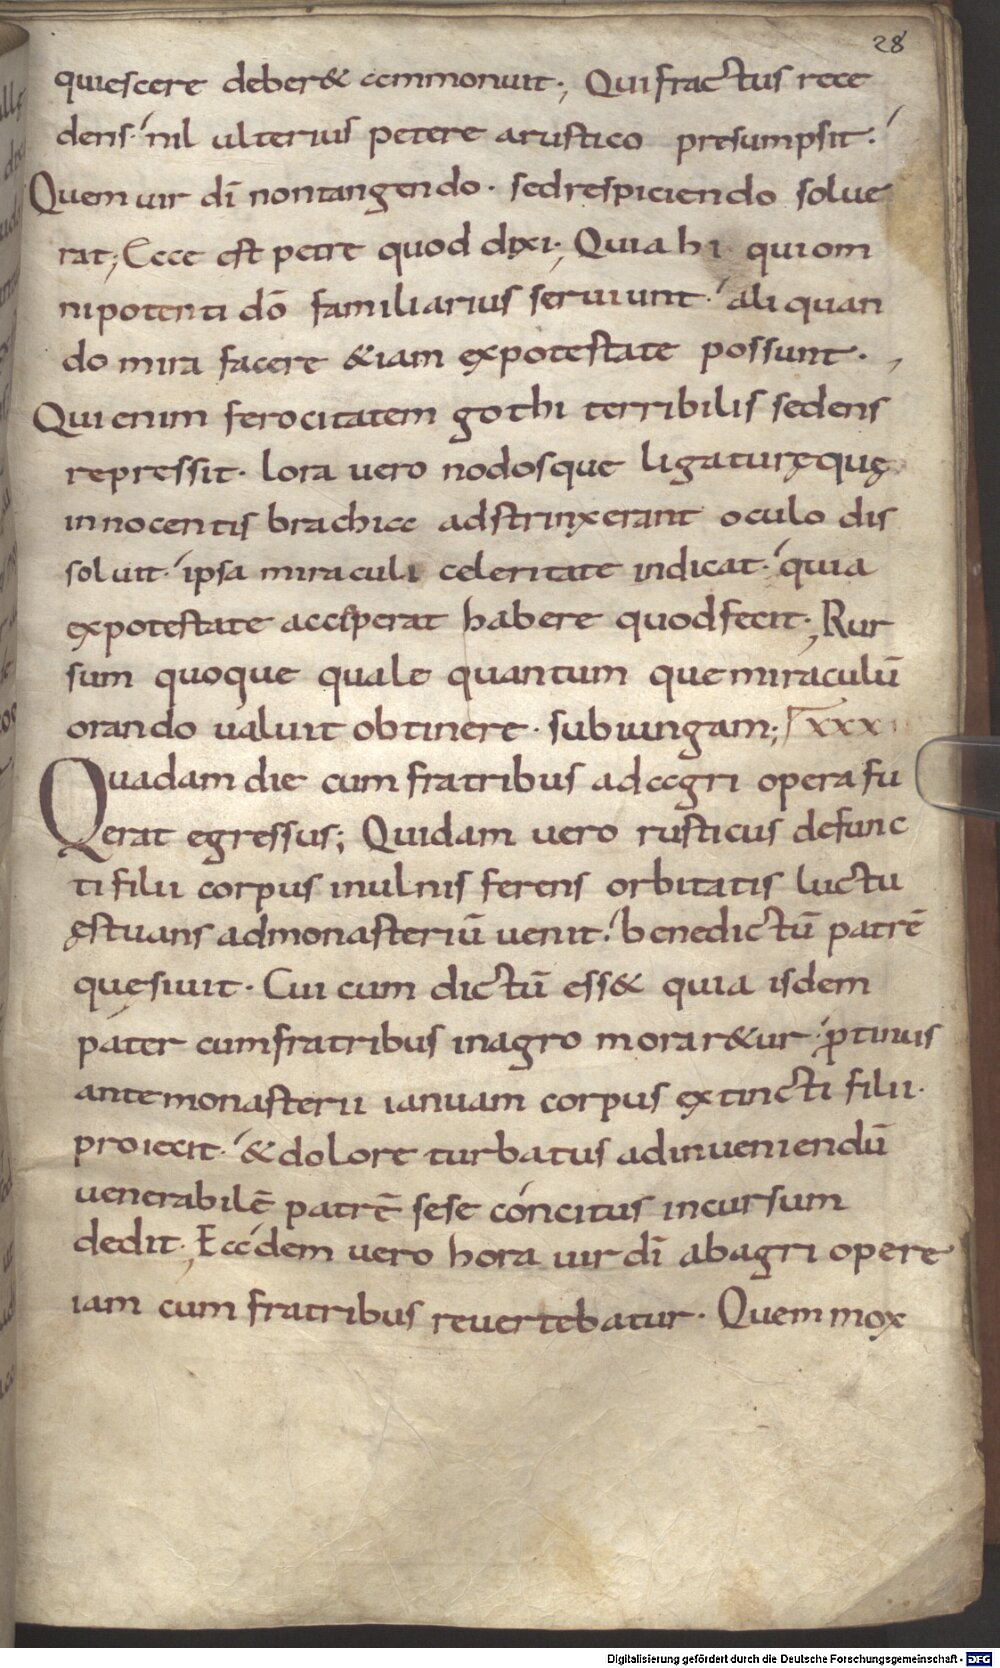 28
quiescere deber& commonuit; Qui fractus rece
dens· nil ulterius petere a rustico presumpsit·
Quem uir dī non tangendo· sed respiciendo solue
rat; Ecce est petre quod dixi; Quia hi qui om
nipotenti dō familiarius seruiunt· aliquan
do mira facere &iam ex potestate possunt·,
Qui enim ferocitatem gothi terribilis sedens
repressit· lora uero nodosque ligaturęquę
innocentis brachicc adstrinxerant oculo dis
soluit· ipsa miraculi celeritate indicat· quia
ex potestate acceperat habere quod fecit; Rur
sum quoque quale quantumque miraculū
orando ualuit obtinere· subiungam; XXX
Quadam die cum fratribus ad ccgri opera fu
erat egressus; Quidam uero rusticus defunc
ti filii corpus in ulnis ferens orbitatis luctu
ęstuans ad monasteriū uenit· benedictū patrē
quęsiuit· Cui cum dictū ess& quia isdem
pater cum fratribus in agro morar&ur· ꝓtinus
ante monasterii ianuam corpus extincti filii·
proiecit· & dolore turbatus ad inueniendū
uenerabilē patrē sese concitus in cursum
dedit; Eccdem uero hora uir dī ab agri opere
iam cum fratribus reuertebatur· Quem mox
Digitalisierung gefördert durch die Deutsche Forschungsgemeinschaft · DFG